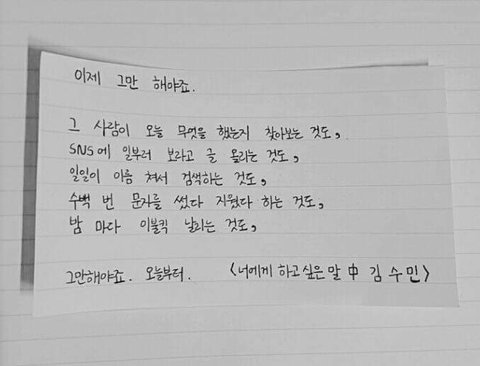 이제 그만 해야죠.
그 사람이 오늘 무엇을 했는지 찾아보는 것도,
SNS에 일부러 보라고 글 올리는 것도,
일일이 이름 쳐서 검색하는 것도,
수백 번 문자를 썼다 지웠다 하는 것도,
밤 마다 이불킥 날리는 것도,
그만해야죠. 오늘부터. 〈너에게 하고싶은말 中 김수민〉